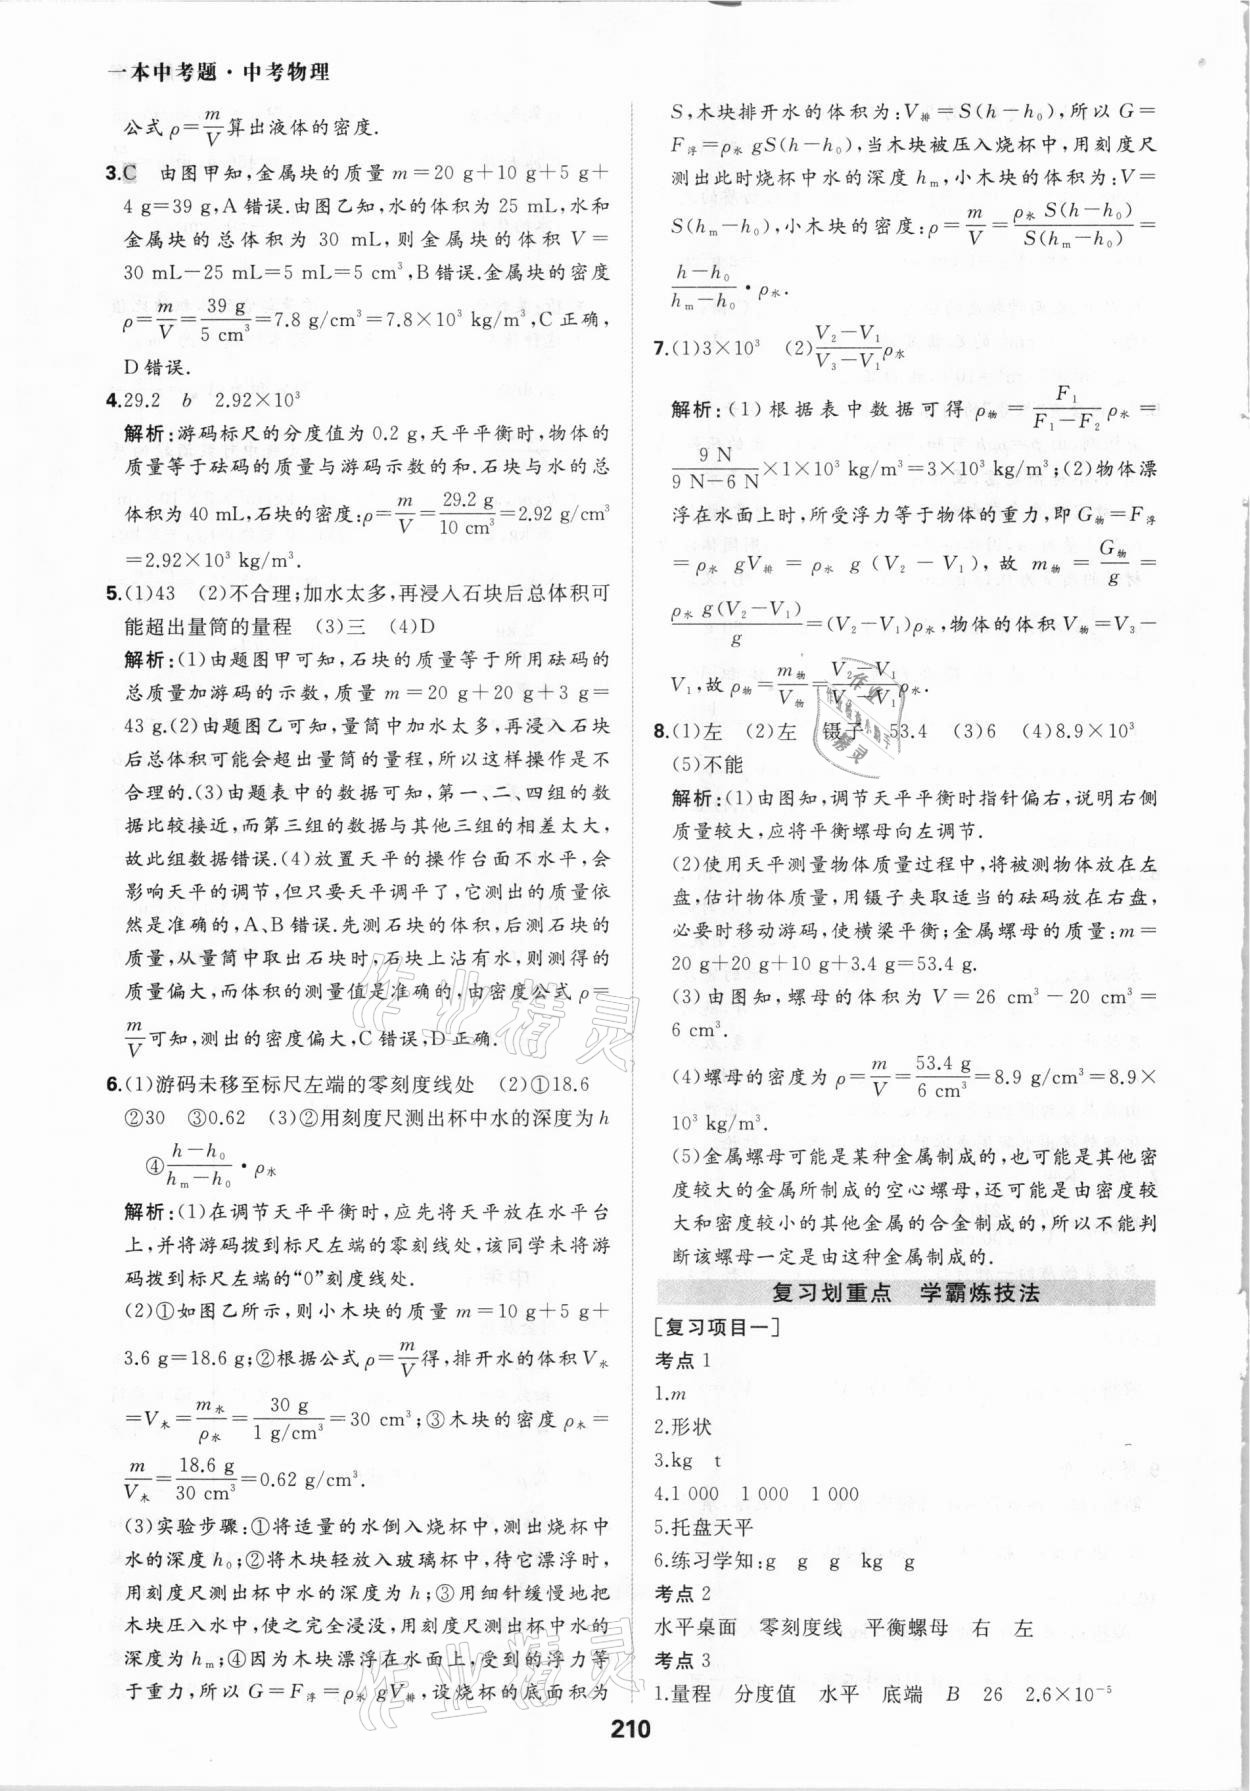 一本中考题·中考物理
公式 ρ=m/V 算出液体的密度.
3.C 由图甲知,金属块的质量 m=20 g+10 g+5 g+
4 g=39 g,A 错误.由图乙知,水的体积为 25 mL,水和
金属块的总体积为 30 mL,则金属块的体积 V=
30 mL-25 mL=5 mL=5 cm³,B 错误.金属块的密度
ρ=m/V=39 g/5 cm³=7.8 g/cm³=7.8×10³ kg/m³,C 正确,
D 错误.
4.29.2 b 2.92×10³
解析:游码标尺的分度值为 0.2 g,天平平衡时,物体的
质量等于砝码的质量与游码示数的和.石块与水的总
体积为 40 mL,石块的密度:ρ=m/V=29.2 g/10 cm³=2.92 g/cm³
=2.92×10³ kg/m³.
5.(1)43 (2)不合理;加水太多,再浸入石块后总体积可
能超出量筒的量程 (3)三 (4)D
解析:(1)由题图甲可知,石块的质量等于所用砝码的
总质量加游码的示数,质量 m=20 g+20 g+3 g=
43 g.(2)由题图乙可知,量筒中加水太多,再浸入石块
后总体积可能会超出量筒的量程,所以这样操作是不
合理的.(3)由题表中的数据可知,第一、二、四组的数
据比较接近,而第三组的数据与其他三组的相差太大,
故此组数据错误.(4)放置天平的操作台面不水平,会
影响天平的调节,但只要天平调平了,它测出的质量依
然是准确的,A、B 错误.先测石块的体积,后测石块的
质量,从量筒中取出石块时,石块上沾有水,则测得的
质量偏大,而体积的测量值是准确的,由密度公式 ρ=
m/V 可知,测出的密度偏大,C 错误,D 正确.
6.(1)游码未移至标尺左端的零刻度线处 (2)①18.6
②30 ③0.62 (3)②用刻度尺测出杯中水的深度为 h
④(h-h₀)/(hₘ-h₀)·ρ水
解析:(1)在调节天平平衡时,应先将天平放在水平台
上,并将游码拨到标尺左端的零刻线处,该同学未将游
码拨到标尺左端的“0”刻度线处.
(2)①如图乙所示,则小木块的质量 m=10 g+5 g+
3.6 g=18.6 g;②根据公式 ρ=m/V 得,排开水的体积 V水
=V木=m水/ρ水=30 g/1 g/cm³=30 cm³;③木块的密度 ρ木=
m/V木=18.6 g/30 cm³=0.62 g/cm³.
(3)实验步骤:①将适量的水倒入烧杯中,测出烧杯中
水的深度 h₀;②将木块轻放入玻璃杯中,待它漂浮时,
用刻度尺测出杯中水的深度为 h;③用细针缓慢地把
木块压入水中,使之完全浸没,用刻度尺测出杯中水的
深度为 hₘ;④因为木块漂浮在水面上,受到的浮力等
于重力,所以 G=F浮=ρ水 gV排,设烧杯的底面积为
S,木块排开水的体积为:V排=S(h-h₀),所以 G=
F浮=ρ水 gS(h-h₀),当木块被压入烧杯中,用刻度尺
测出此时烧杯中水的深度 hₘ,小木块的体积为:V=
S(hₘ-h₀),小木块的密度:ρ=m/V=ρ水 S(h-h₀)/S(hₘ-h₀)=
(h-h₀)/(hₘ-h₀)·ρ水.
7.(1)3×10³ (2)(V₂-V₁)/(V₃-V₁)ρ水
解析:(1)根据表中数据可得 ρ物=F₁/(F₁-F₂) ρ水=
9 N/(9 N-6 N)×1×10³ kg/m³=3×10³ kg/m³;(2)物体漂
浮在水面上时,所受浮力等于物体的重力,即 G物=F浮
=ρ水 gV排=ρ水 g(V₂-V₁),故 m物=G物/g=
ρ水 g(V₂-V₁)/g=(V₂-V₁)ρ水,物体的体积 V物=V₃-
V₁,故 ρ物=m物/V物=(V₂-V₁)/(V₃-V₁)ρ水.
8.(1)左 (2)左 镊子 53.4 (3)6 (4)8.9×10³
(5)不能
解析:(1)由图知,调节天平平衡时指针偏右,说明右侧
质量较大,应将平衡螺母向左调节.
(2)使用天平测量物体质量过程中,将被测物体放在左
盘,估计物体质量,用镊子夹取适当的砝码放在右盘,
必要时移动游码,使横梁平衡;金属螺母的质量:m=
20 g+20 g+10 g+3.4 g=53.4 g.
(3)由图知,螺母的体积为 V=26 cm³-20 cm³=
6 cm³.
(4)螺母的密度为 ρ=m/V=53.4 g/6 cm³=8.9 g/cm³=8.9×
10³ kg/m³.
(5)金属螺母可能是某种金属制成的,也可能是其他密
度较大的金属所制成的空心螺母,还可能是由密度较
大和密度较小的其他金属的合金制成的,所以不能判
断该螺母一定是由这种金属制成的.
复习划重点 学霸炼技法
[复习项目一]
考点 1
1.m
2.形状
3.kg t
4.1 000 1 000 1 000
5.托盘天平
6.练习学知:g g g kg g
考点 2
水平桌面 零刻度线 平衡螺母 右 左
考点 3
1.量程 分度值 水平 底端 B 26 2.6×10⁻⁵
210
作业精灵
作业精灵